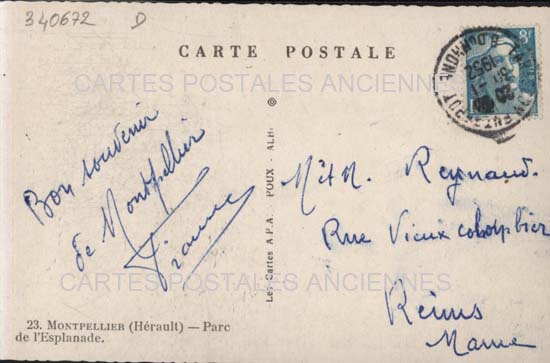 340672 D
CARTE POSTALE
CARTES POSTALES ANCIENNES
Bon souvenir
de Montpellier
Les Cartes A.P.A POUX - ALBI
Reynaud.
Rue Vieux colombier
Reims
Marne
CARTES POSTALES ANCIENNES
23. MONTPELLIER (Hérault) — Parc
de l'Esplanade.
8F
1952